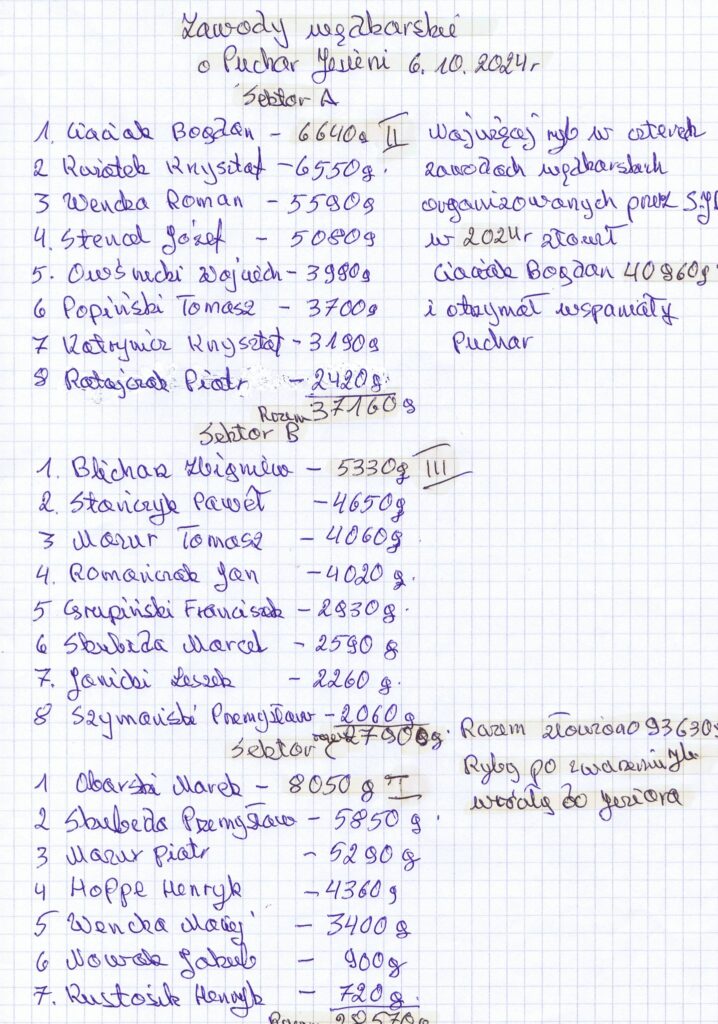 Zawody wędkarskie
o Puchar Jesieni 6.10.2024r
Sektor A
1. Ciaciak Bogdan - 6640g II
2 Kwiatek Krzysztof - 6550g.
3 Wencka Roman - 5590g
4. Stencel Józef - 5080g
5. Owśnicki Wojciech - 3980g
6 Popiński Tomasz - 3700g
7 Krzysztof - 3190g
8 Ratajczak Piotr - 2420g.
Razem 37160g
Najwięcej ryb w czterech
zawodach wędkarskich
organizowanych przez
w 2024r złowił
Ciaciak Bogdan 40960g.
i otrzymał wspaniały
Puchar
Sektor B
1. Blicharz Zbigniew - 5330g III
2. Stańczyk Paweł - 4650g
3 Mazur Tomasz - 4060g
4. Romańczak Jan - 4020g.
5 Grupiński Franciszek - 2930g.
6 Skubeda Marcel - 2590g
7. Janicki Leszek - 2260g.
8 Szymański Przemysław - 2060g
razem 27900g.
Razem złowiono 93630g
Ryby po zważeniu
wróciły do jeziora
Sektor C
1 Obarski Marek - 8050g I
2 Skubeda Przemysław - 5850g.
3 Mazur Piotr - 5290g
4 Hoppe Henryk - 4360g
5 Wencka Maciej - 3400g
6 Nowak Jakub - 900g
7. Kustosik Henryk - 720g.
Razem 28570g